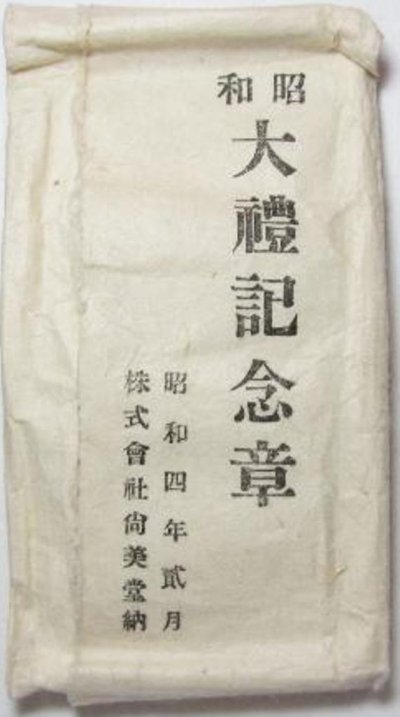 昭和
大禮記念章
昭和四年貳月
株式會社尙美堂納